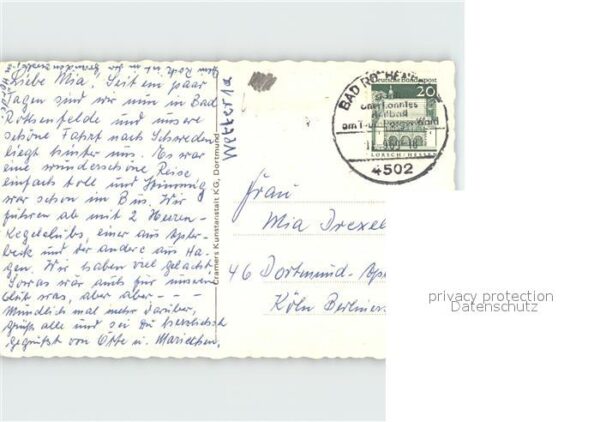 Liebe Mia. Seit ein paar
Tagen sind wir nun in Bad
Rothenfelde und unsere
schöne Fahrt nach Schweden
liegt hinter uns. Es war
eine wunderschöne Reise
einfach toll und Stimmung
war schon im Bus. Wir
fuhren ab mit 2 Herren-
Kegelclubs, einer aus Apler-
beck und der andere aus Ha-
gen. Wir haben viel gelacht.
Sowas war auch für unsern
was, aber aber - - -
Mündlich mal mehr darüber,
Grüß alle und sei Du herzlichst
gegrüßt von Otto u. Mariechen.
Wetter 1a
Cramers Kunstanstalt KG, Dortmund
BAD ROTHENF
am Teutoburger Wald
4502
Deutsche Bundespost
20
LORSCH/HESSEN
Frau
Mia Drexel
46 Dortmund-Apl
Köln Berliner
privacy protection
Datenschutz